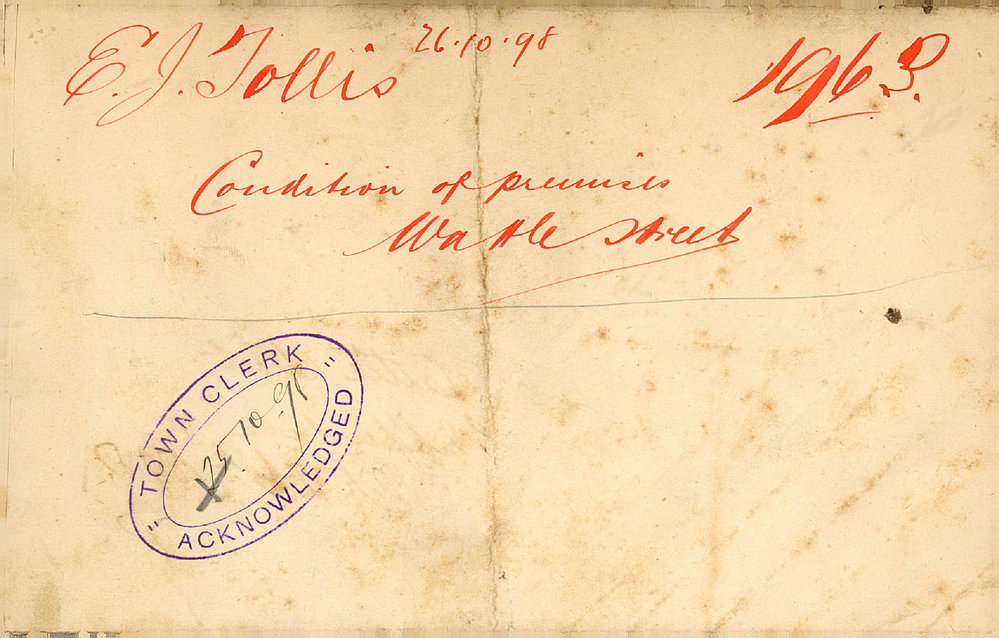 E. J. Tollis 26.10.98 1963.
Condition of premises
Wattle Street
" TOWN CLERK "
25.10.98
ACKNOWLEDGED